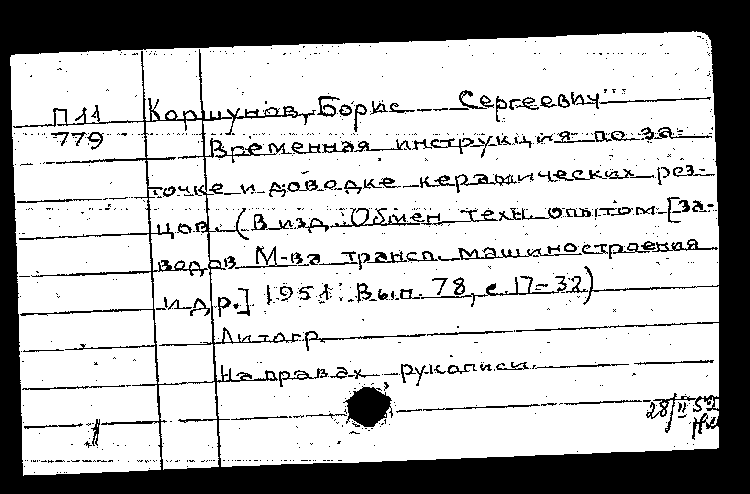 П 11 Коршунов, Борис Сергеевич
779 Временная инструкция по за-
точке и доводке керамических рез-
цов. (В изд.: Обмен техн. опытом [за-
водов М-ва трансп. машиностроения
и др.] 1951. Вып. 78, с. 17-32)
Литогр.
На правах рукописи.
28/II 52